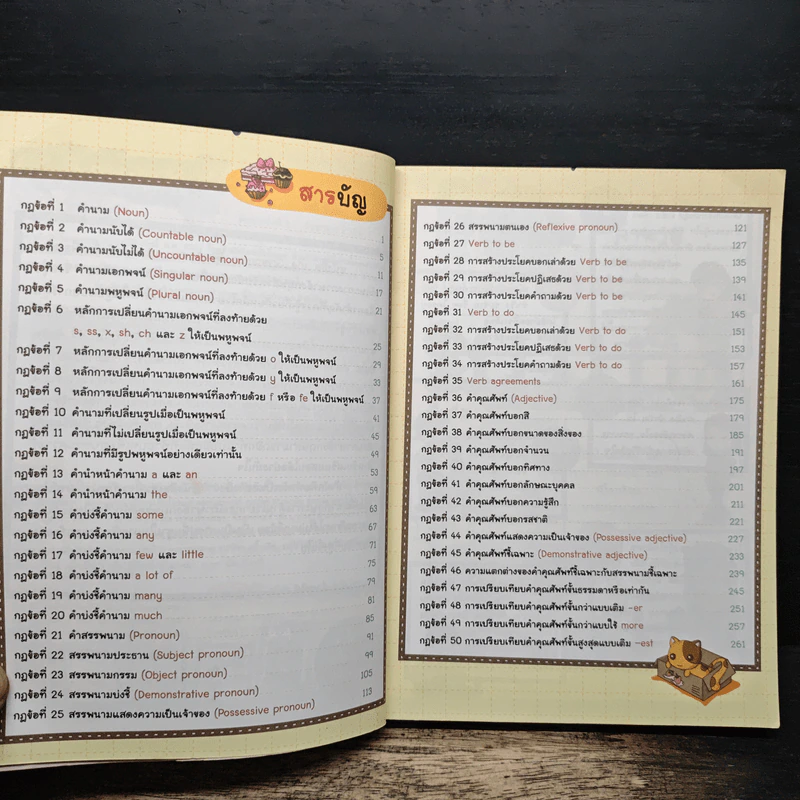 สารบัญ
กฎข้อที่ 1 คำนาม (Noun) 1
กฎข้อที่ 2 คำนามนับได้ (Countable noun) 5
กฎข้อที่ 3 คำนามนับไม่ได้ (Uncountable noun) 11
กฎข้อที่ 4 คำนามเอกพจน์ (Singular noun) 17
กฎข้อที่ 5 คำนามพหูพจน์ (Plural noun) 21
กฎข้อที่ 6 หลักการเปลี่ยนคำนามเอกพจน์ที่ลงท้ายด้วย
s, ss, x, sh, ch และ z ให้เป็นพหูพจน์ 25
กฎข้อที่ 7 หลักการเปลี่ยนคำนามเอกพจน์ที่ลงท้ายด้วย o ให้เป็นพหูพจน์ 29
กฎข้อที่ 8 หลักการเปลี่ยนคำนามเอกพจน์ที่ลงท้ายด้วย y ให้เป็นพหูพจน์ 33
กฎข้อที่ 9 หลักการเปลี่ยนคำนามเอกพจน์ที่ลงท้ายด้วย f หรือ fe ให้เป็นพหูพจน์ 37
กฎข้อที่ 10 คำนามที่เปลี่ยนรูปเมื่อเป็นพหูพจน์ 41
กฎข้อที่ 11 คำนามที่ไม่เปลี่ยนรูปเมื่อเป็นพหูพจน์ 45
กฎข้อที่ 12 คำนามที่มีรูปพหูพจน์อย่างเดียวเท่านั้น 49
กฎข้อที่ 13 คำนำหน้าคำนาม a และ an 53
กฎข้อที่ 14 คำนำหน้าคำนาม the 59
กฎข้อที่ 15 คำบ่งชี้คำนาม some 63
กฎข้อที่ 16 คำบ่งชี้คำนาม any 67
กฎข้อที่ 17 คำบ่งชี้คำนาม few และ little 71
กฎข้อที่ 18 คำบ่งชี้คำนาม a lot of 75
กฎข้อที่ 19 คำบ่งชี้คำนาม many 79
กฎข้อที่ 20 คำบ่งชี้คำนาม much 81
กฎข้อที่ 21 คำสรรพนาม (Pronoun) 85
กฎข้อที่ 22 สรรพนามประธาน (Subject pronoun) 91
กฎข้อที่ 23 สรรพนามกรรม (Object pronoun) 99
กฎข้อที่ 24 สรรพนามบ่งชี้ (Demonstrative pronoun) 105
กฎข้อที่ 25 สรรพนามแสดงความเป็นเจ้าของ (Possessive pronoun) 113
กฎข้อที่ 26 สรรพนามตนเอง (Reflexive pronoun) 121
กฎข้อที่ 27 Verb to be 127
กฎข้อที่ 28 การสร้างประโยคบอกเล่าด้วย Verb to be 135
กฎข้อที่ 29 การสร้างประโยคปฏิเสธด้วย Verb to be 139
กฎข้อที่ 30 การสร้างประโยคคำถามด้วย Verb to be 141
กฎข้อที่ 31 Verb to do 145
กฎข้อที่ 32 การสร้างประโยคบอกเล่าด้วย Verb to do 151
กฎข้อที่ 33 การสร้างประโยคปฏิเสธด้วย Verb to do 153
กฎข้อที่ 34 การสร้างประโยคคำถามด้วย Verb to do 157
กฎข้อที่ 35 Verb agreements 161
กฎข้อที่ 36 คำคุณศัพท์ (Adjective) 175
กฎข้อที่ 37 คำคุณศัพท์บอกสี 179
กฎข้อที่ 38 คำคุณศัพท์บอกขนาดของสิ่งของ 185
กฎข้อที่ 39 คำคุณศัพท์บอกจำนวน 191
กฎข้อที่ 40 คำคุณศัพท์บอกทิศทาง 197
กฎข้อที่ 41 คำคุณศัพท์บอกลักษณะบุคคล 201
กฎข้อที่ 42 คำคุณศัพท์บอกความรู้สึก 211
กฎข้อที่ 43 คำคุณศัพท์บอกรสชาติ 221
กฎข้อที่ 44 คำคุณศัพท์แสดงความเป็นเจ้าของ (Possessive adjective) 227
กฎข้อที่ 45 คำคุณศัพท์ชี้เฉพาะ (Demonstrative adjective) 233
กฎข้อที่ 46 ความแตกต่างของคำคุณศัพท์ชี้เฉพาะกับสรรพนามชี้เฉพาะ 239
กฎข้อที่ 47 การเปรียบเทียบคำคุณศัพท์ขั้นธรรมดาหรือเท่ากัน 245
กฎข้อที่ 48 การเปรียบเทียบคำคุณศัพท์ขั้นกว่าแบบเติม -er 251
กฎข้อที่ 49 การเปรียบเทียบคำคุณศัพท์ขั้นกว่าแบบใช้ more 257
กฎข้อที่ 50 การเปรียบเทียบคำคุณศัพท์ขั้นสูงสุดแบบเติม -est 261